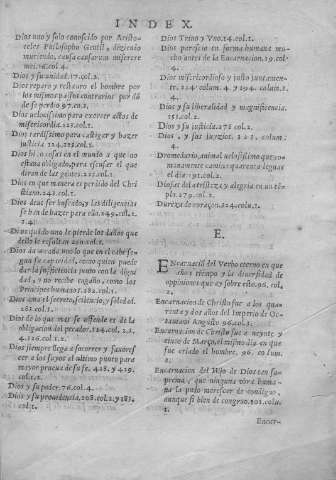 INDEX.
Dios uno y solo conoscido por Aristo-
teles Philosopho Gentil, diziendo
muriendo, causa causarum miserere
mei. 16. col. 4.
Dios y su unidad. 17. col. 2.
Dios reparo y restauro el hombre por
los mismos passos contrarios por dõ
de se perdio 97. co. 2.
Dios velocissimo para exercer actos de
misericordia. 122. col. 1.
Dios tardissimo para castigar y hazer
justicia 124, 125. col. 1.
Dios hizo cosas en el mundo a que no
estava obligado, para
Dios en que manera es perdido del Chri
stiano. 242. col. 1.
Dios deve ser buscado, y las diligencias
se han de hazer para ello. 249. col. 1.
2. 4.
Dios quando uno le pierde los daños que
dello le resultan 250. col. 1.
Dios da a cada uno lo que en el cabe se-
gun su capacidad, como quien puede
dar la sufficiencia junto con la digni
dad, y no recibe engaño, como los
Principes humanos. 282. col. 1.
Dios ama el secreto, silencio, y soledad.
282. col. 1.
Dios de lo que mas se offende es de la
obligacion del pecador. 124. col. 2.
4. 126. col. 1. 2.
Dios siempre llega a socorrer y favores
cer a los suyos al ultimo punto para
mayor prueva de su fe. 428. y 429.
col. 1. 2.
Dios y su poder. 76. col. 4.
Dios y su providencia. 208. col. 2. y 283.
col. 1.
Dios Trino y Uno. 14. col. 1.
Dios parescio en forma humana mu-
cho antes de la Encarnacion. 29. col.
4.
Dios misericordioso y justo juntamen-
te. 124. colum. 4. y 194. colum.
4.
Dios y su liberalidad y magnificencia.
151. col. 2.
Dios y su justicia. 275 col. 2.
Dios, y sus juyzios. 222. colum.
4.
Dromedario, animal velocissimo que co-
munmente camina quarenta leguas
el dia. 191. col. 2.
Diosas del tristeza y alegria en un tẽm
plo. 279. col. 2.
Dureza de coraçon. 324. colu. 1.
E.
ENcarnaciõ del Verbo eterno en que
años y tiempo y la diversidad de
oppiniones que ay sobre esto. 96. col.
2.
Encarnacion de Christo fue a los qua-
renta y dos años del Imperio de Oc-
taviano Augusto 96. col. 1.
Encarnacion de Christo fue a veynte y
cinco de Março, el mismo dia en que
fue criado el hombre, 96. colum
2.
Encarnacion del Hijo de Dios tan su-
prema, que ninguna obra huma-
na la pudo merescer de condigno,
aunque si bien de congruo. 101. colu.
1.
Encar-